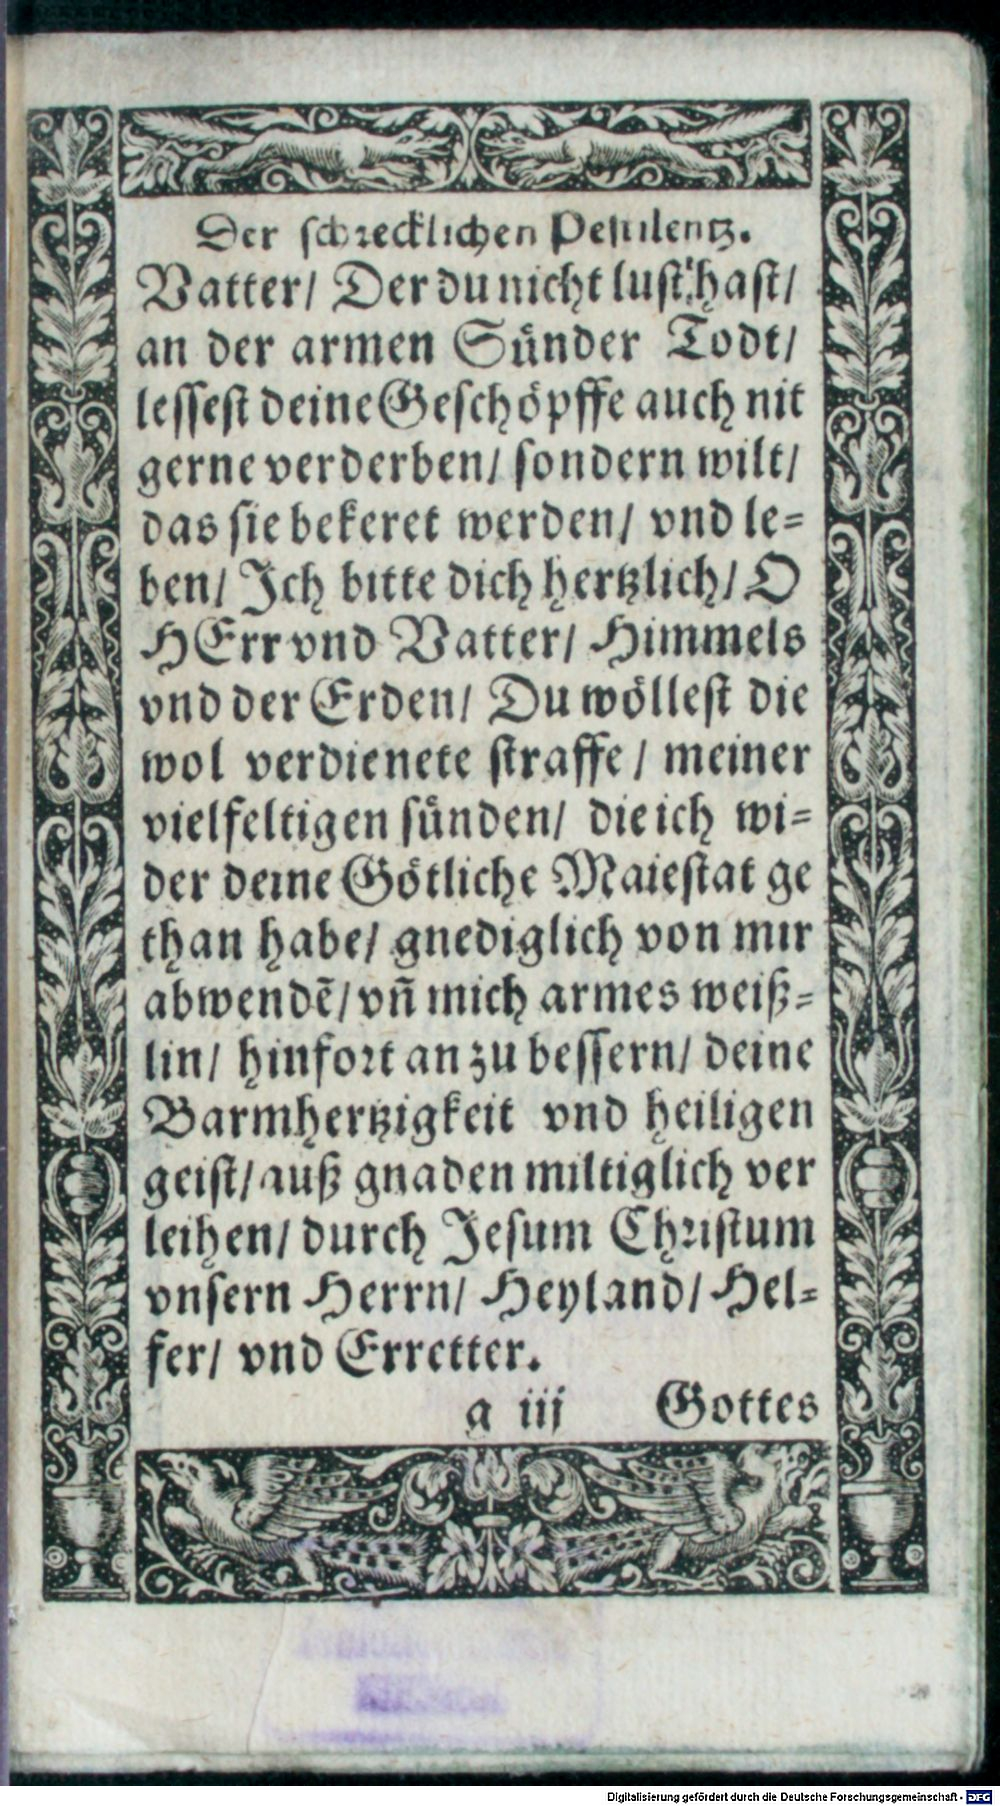 Der schrecklichen Pestilentz.
Vatter/ Der du nicht lust hast/
an der armen Sünder Todt/
lessest deine Geschöpffe auch nit
gerne verderben/ sondern wilt/
das sie bekeret werden/ vnd le=
ben/ Ich bitte dich hertzlich/ O
HErr vnd Vatter/ Himmels
vnd der Erden/ Du wöllest die
wol verdienete straffe/ meiner
vielfeltigen sünden/ die ich wi=
der deine Götliche Maiestat ge
than habe/ gnediglich von mir
abwendẽ/ vñ mich armes weiß=
lin/ hinfort an zu bessern/ deine
Barmhertzigkeit vnd heiligen
geist/ auß gnaden miltiglich ver
leihen/ durch Jesum Christum
vnsern Herrn/ Heyland/ Hel=
fer/ vnd Erretter.
a iij Gottes
Digitalisierung gefördert durch die Deutsche Forschungsgemeinschaft - DFG